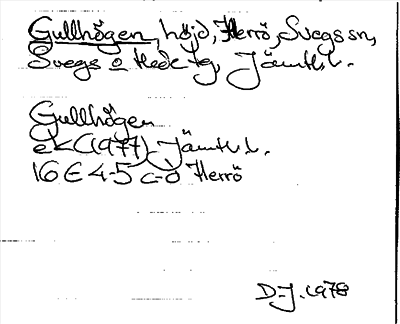 Gullhögen, höjd, Herrö, Svegs sn,
Svegs o Hede tg, Jämtl. l.
Gullhögen
ek (1977) Jämtl. l.
16 E 4-5 c-d Herrö
D-J. 1978